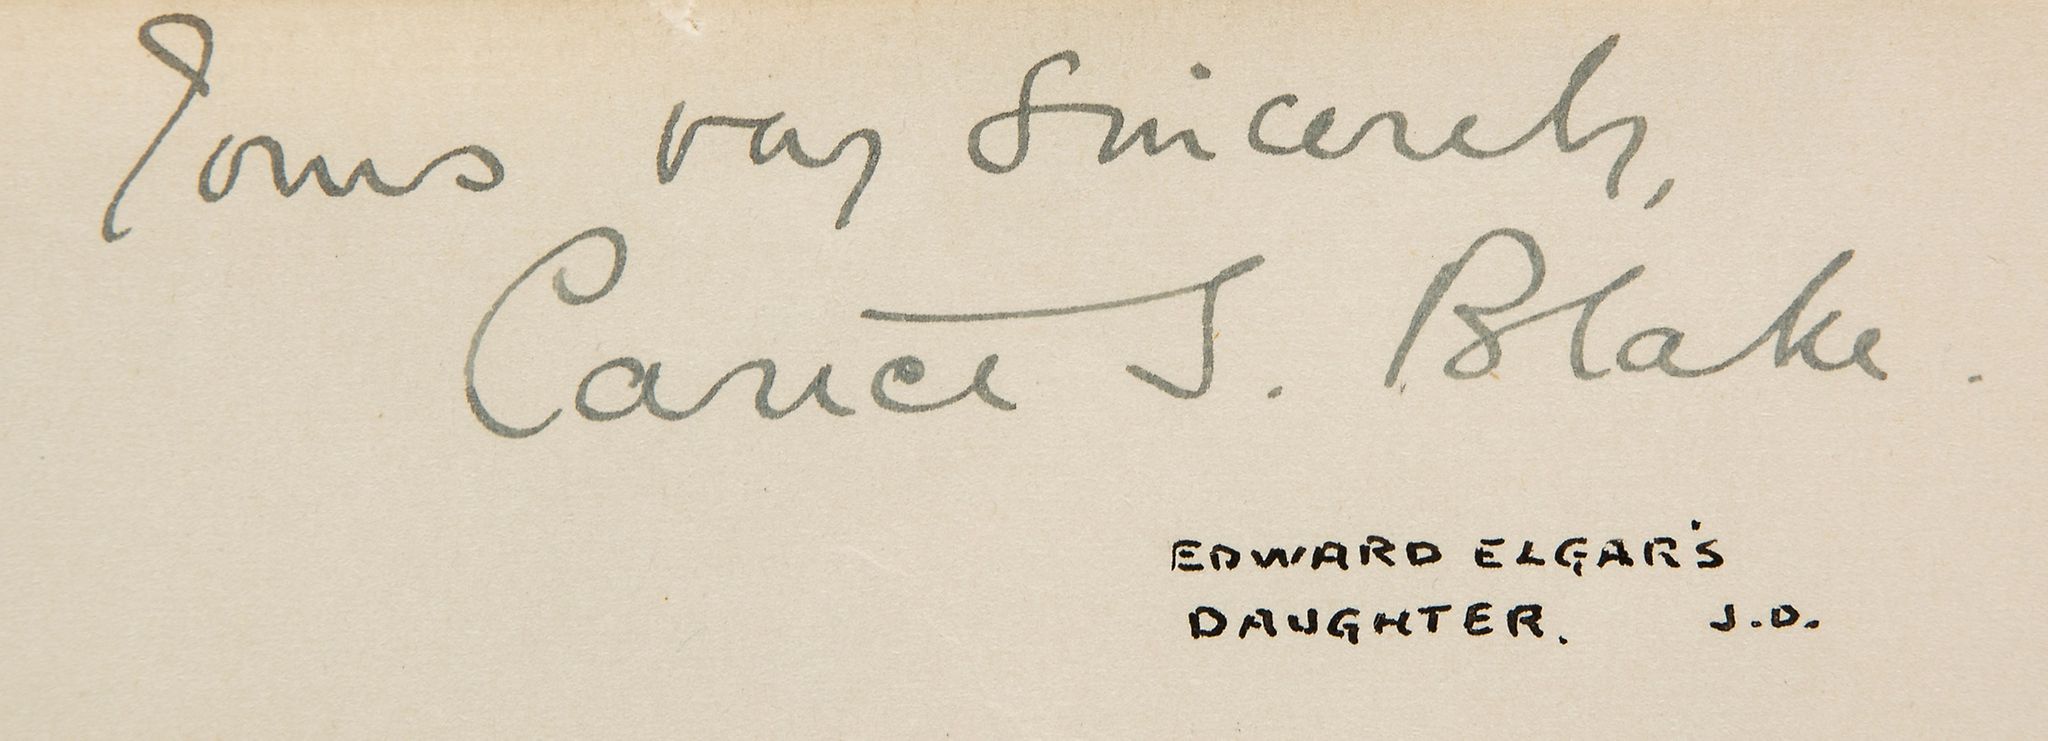 Yours very sincerely,
Carice I. Blake.
EDWARD ELGAR'S
DAUGHTER. J.D.